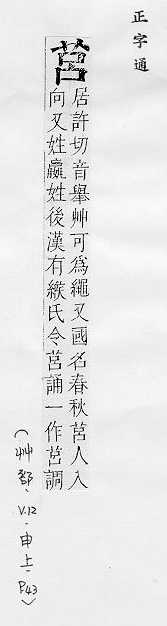 正字通
莒
居許切音舉艸可爲繩又國名春秋莒人入
向又姓嬴姓後漢有緱氏令莒誦一作莒調
(艸部、V.12、申上、P43)